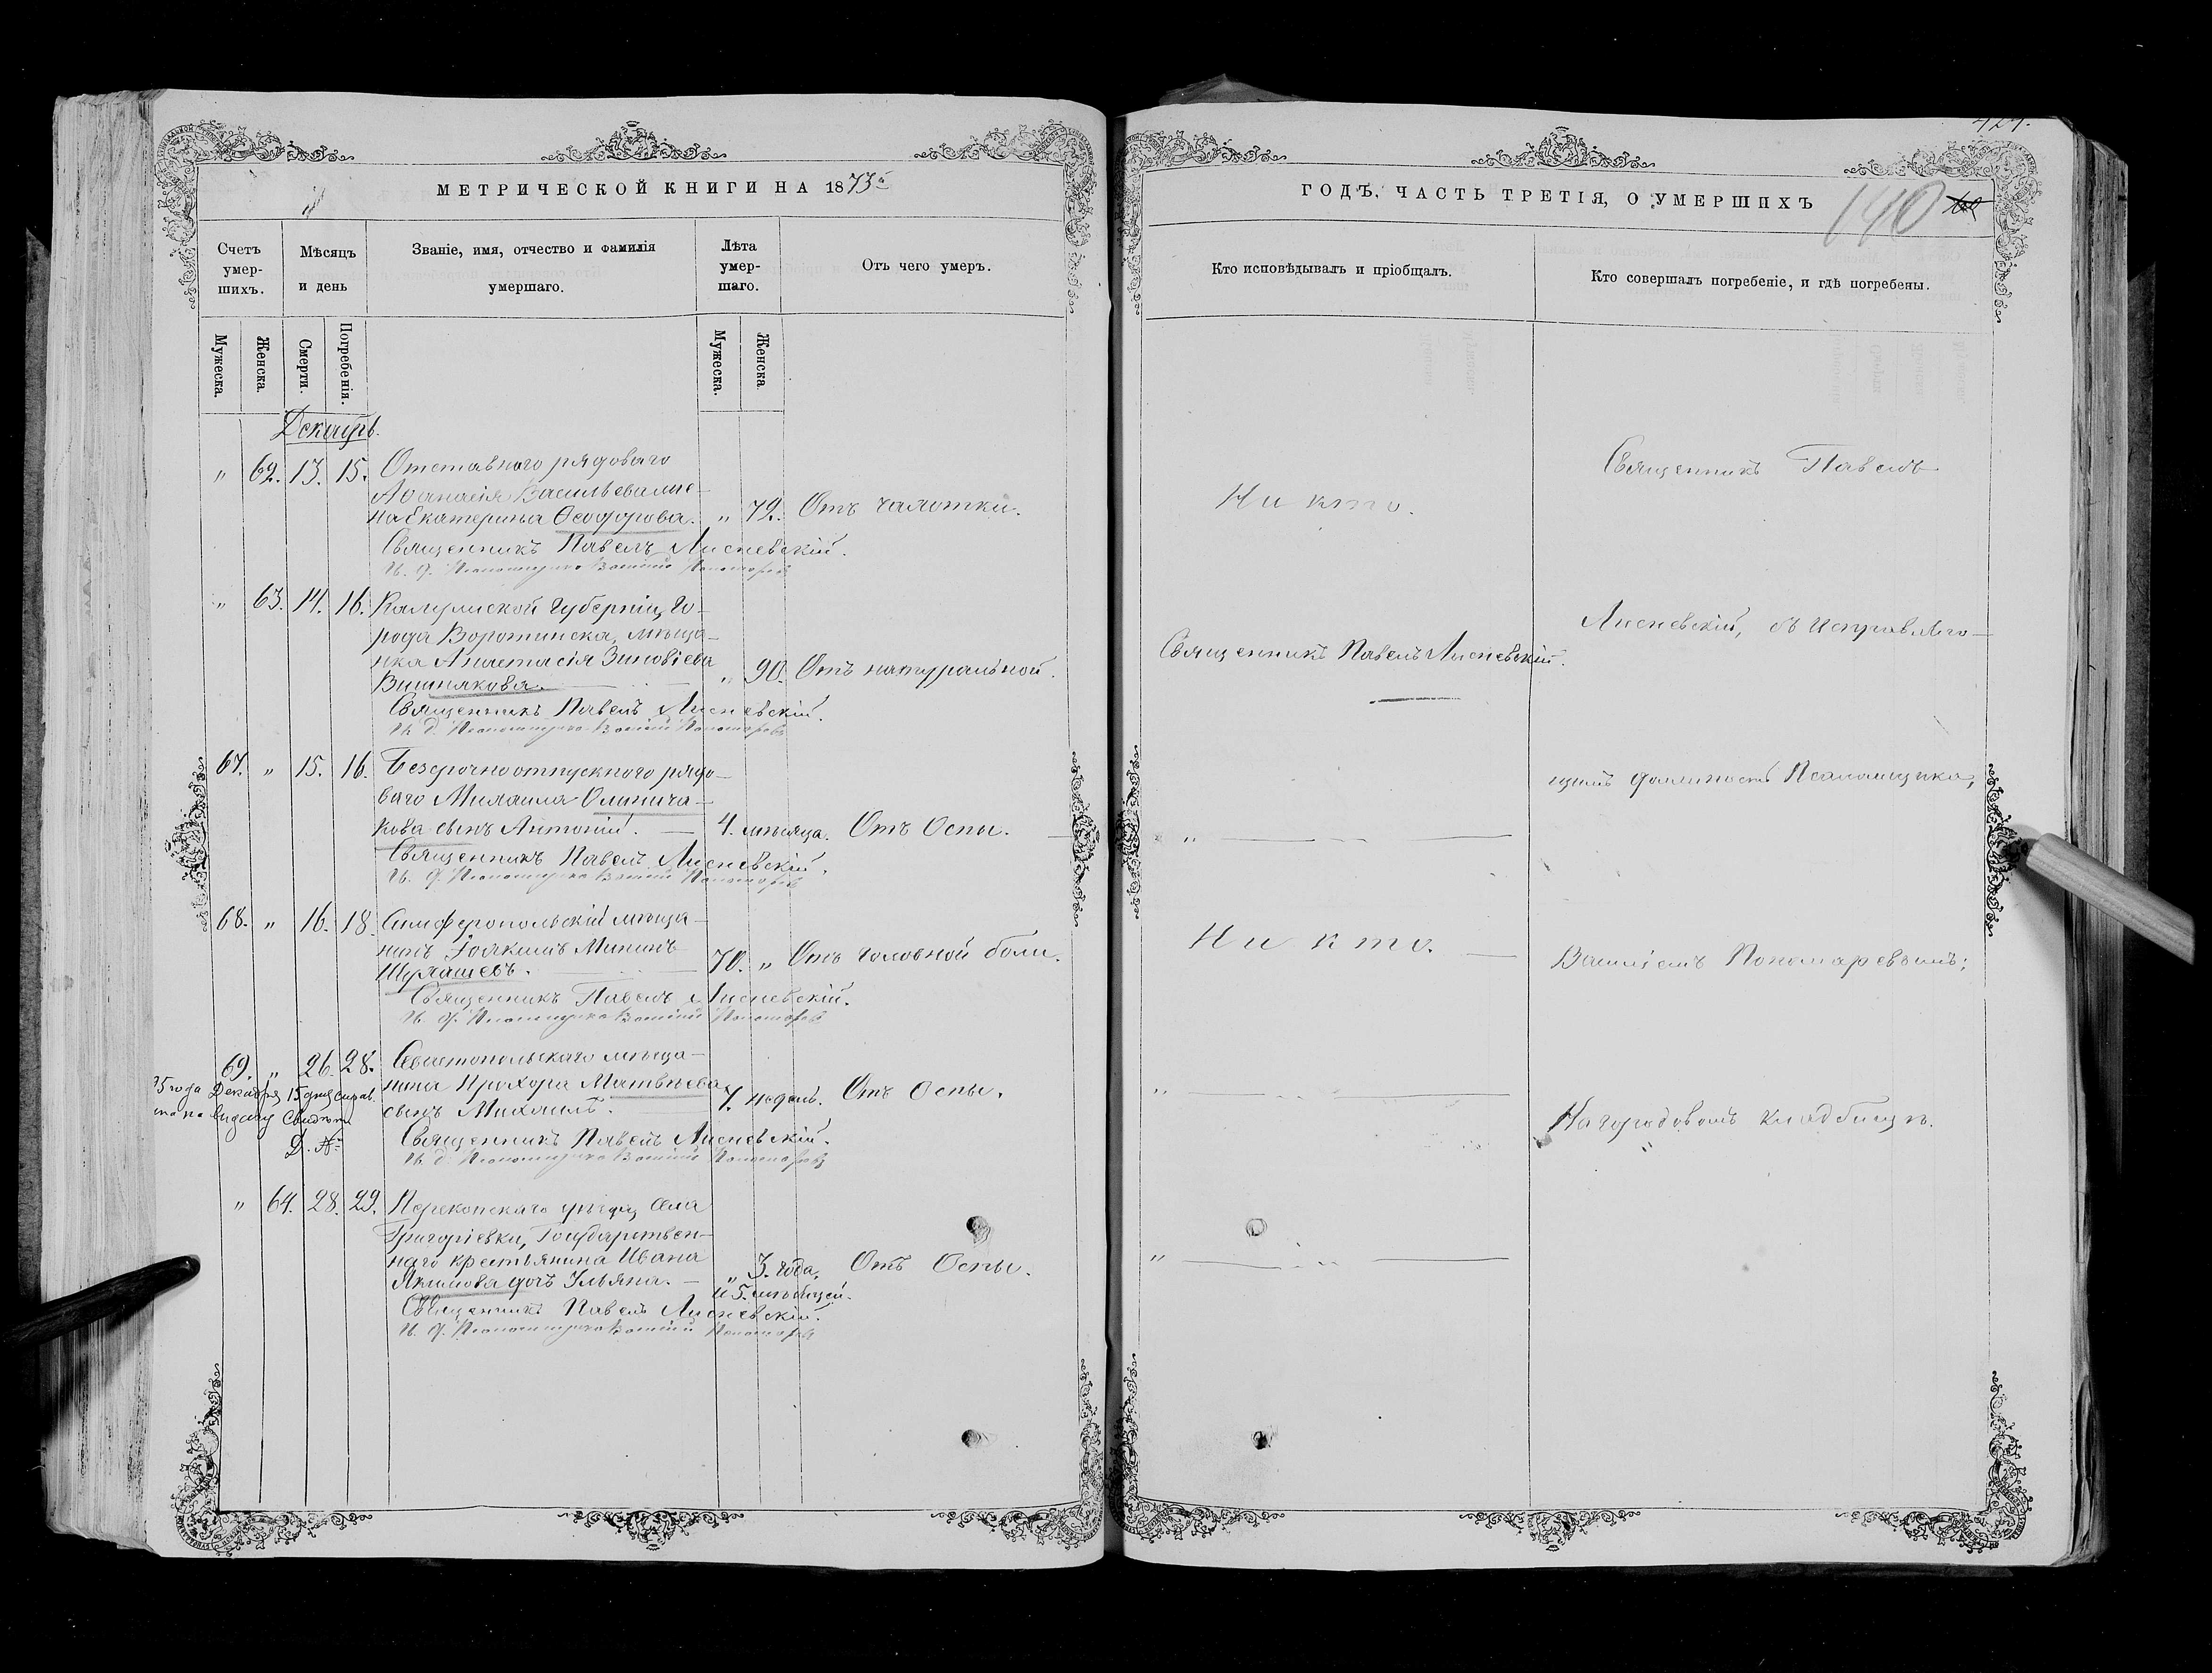 МЕТРИЧЕСКОЙ КНИГИ НА 1873й
Счетъ умершихъ.
Мѣсяцъ и день
Званіе, имя, отчество и фамилія умершаго.
Лѣта умершаго.
Отъ чего умеръ.
Мужеска.
Женска.
Смерти.
Погребенія.
Мужеска.
Женска.
Декабрь.
" 62. 13. 15. Отставного рядоваго
Аѳанасія Васильева же-
на Екатерина Ѳеодорова. " 72. Отъ чахотки.
Священникъ Павелъ Лисневскій.
И. д. Псаломщика Василій Пономаревъ
" 63. 14. 16. Калужской губерніи, го-
рода Воротынска, мѣща-
нка Анастасія Зиновіева
Вишнякова. " 90. Отъ натуральной.
Священникъ Павелъ Лисневскій.
И. д. Псаломщика Василій Пономаревъ
67. " 15. 16. Безсрочноотпускного рядо-
ваго Михаила
кова сынъ Антоній. 4. мѣсяца. Отъ Оспы.
Священникъ Павелъ Лисневскій.
И. д. Псаломщика Василій Пономаревъ
68. " 16. 18. Симферопольскій мѣща-
нинъ Іоакимъ Мининъ
70. " Отъ головной боли.
Священникъ Павелъ Лисневскій.
И. д. Псаломщика Василій Пономаревъ
69. " 26. 28. Севастопольскаго мѣща-
нина Прохора Матвѣева
сынъ Михаилъ. 7. недель. Отъ Оспы.
Священникъ Павелъ Лисневскій.
И. д. Псаломщика Василій Пономаревъ
года Декабря 15 дня справ.
на выдачу
" 64. 28. 29. Перекопскаго уѣзда села
Григоріевки, Государствен-
наго крестьянина Ивана
Акимова дочь Ульяна. " 3. года, Отъ Оспы.
и 5. мѣсяцей.
Священникъ Павелъ Лисневскій.
И. д. Псаломщика Василій Пономаревъ
ГОДЪ, ЧАСТЬ ТРЕТІЯ, О УМЕРШИХЪ
140
Кто исповѣдывалъ и пріобщалъ.
Кто совершалъ погребеніе, и гдѣ погребены.
Никто.
Священникъ Павелъ Лисневскій.
"
Никто.
"
"
Священникъ Павелъ
Лисневскій, съ исправляю-
щимъ должность Псаломщика,
Василіемъ Пономаревымъ;
На городовомъ кладбищѣ.